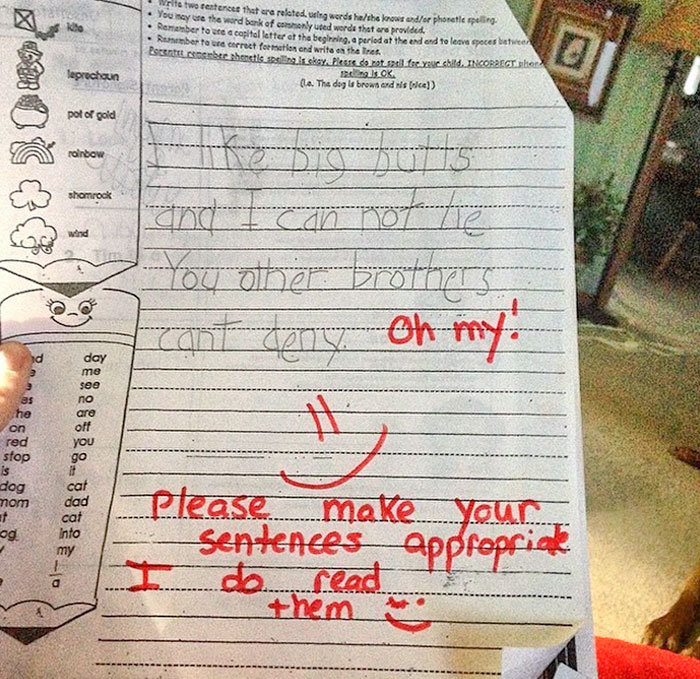 Write two sentences that are related, using words he/she knows and/or phonetic spelling.
You may use the word bank of commonly used words that are provided.
Remember to use a capital letter at the beginning, a period at the end and to leave spaces between
Remember to use correct formation and write on the lines.
Parents: remember phonetic spelling is okay. Please do not spell for your child, INCORRECT
spelling is OK.
(i.e. The dog is brown and nis [nice])
kite
leprechaun
pot of gold
rainbow
shamrock
wind
I like big butts
and I can not lie
You other brothers
cant deny.
Oh my!
Please make your
sentences appropriate
I do read
them
day
me
see
no
he are
on off
red you
stop go
is it
dog cat
mom dad
cat
into
my
I
a